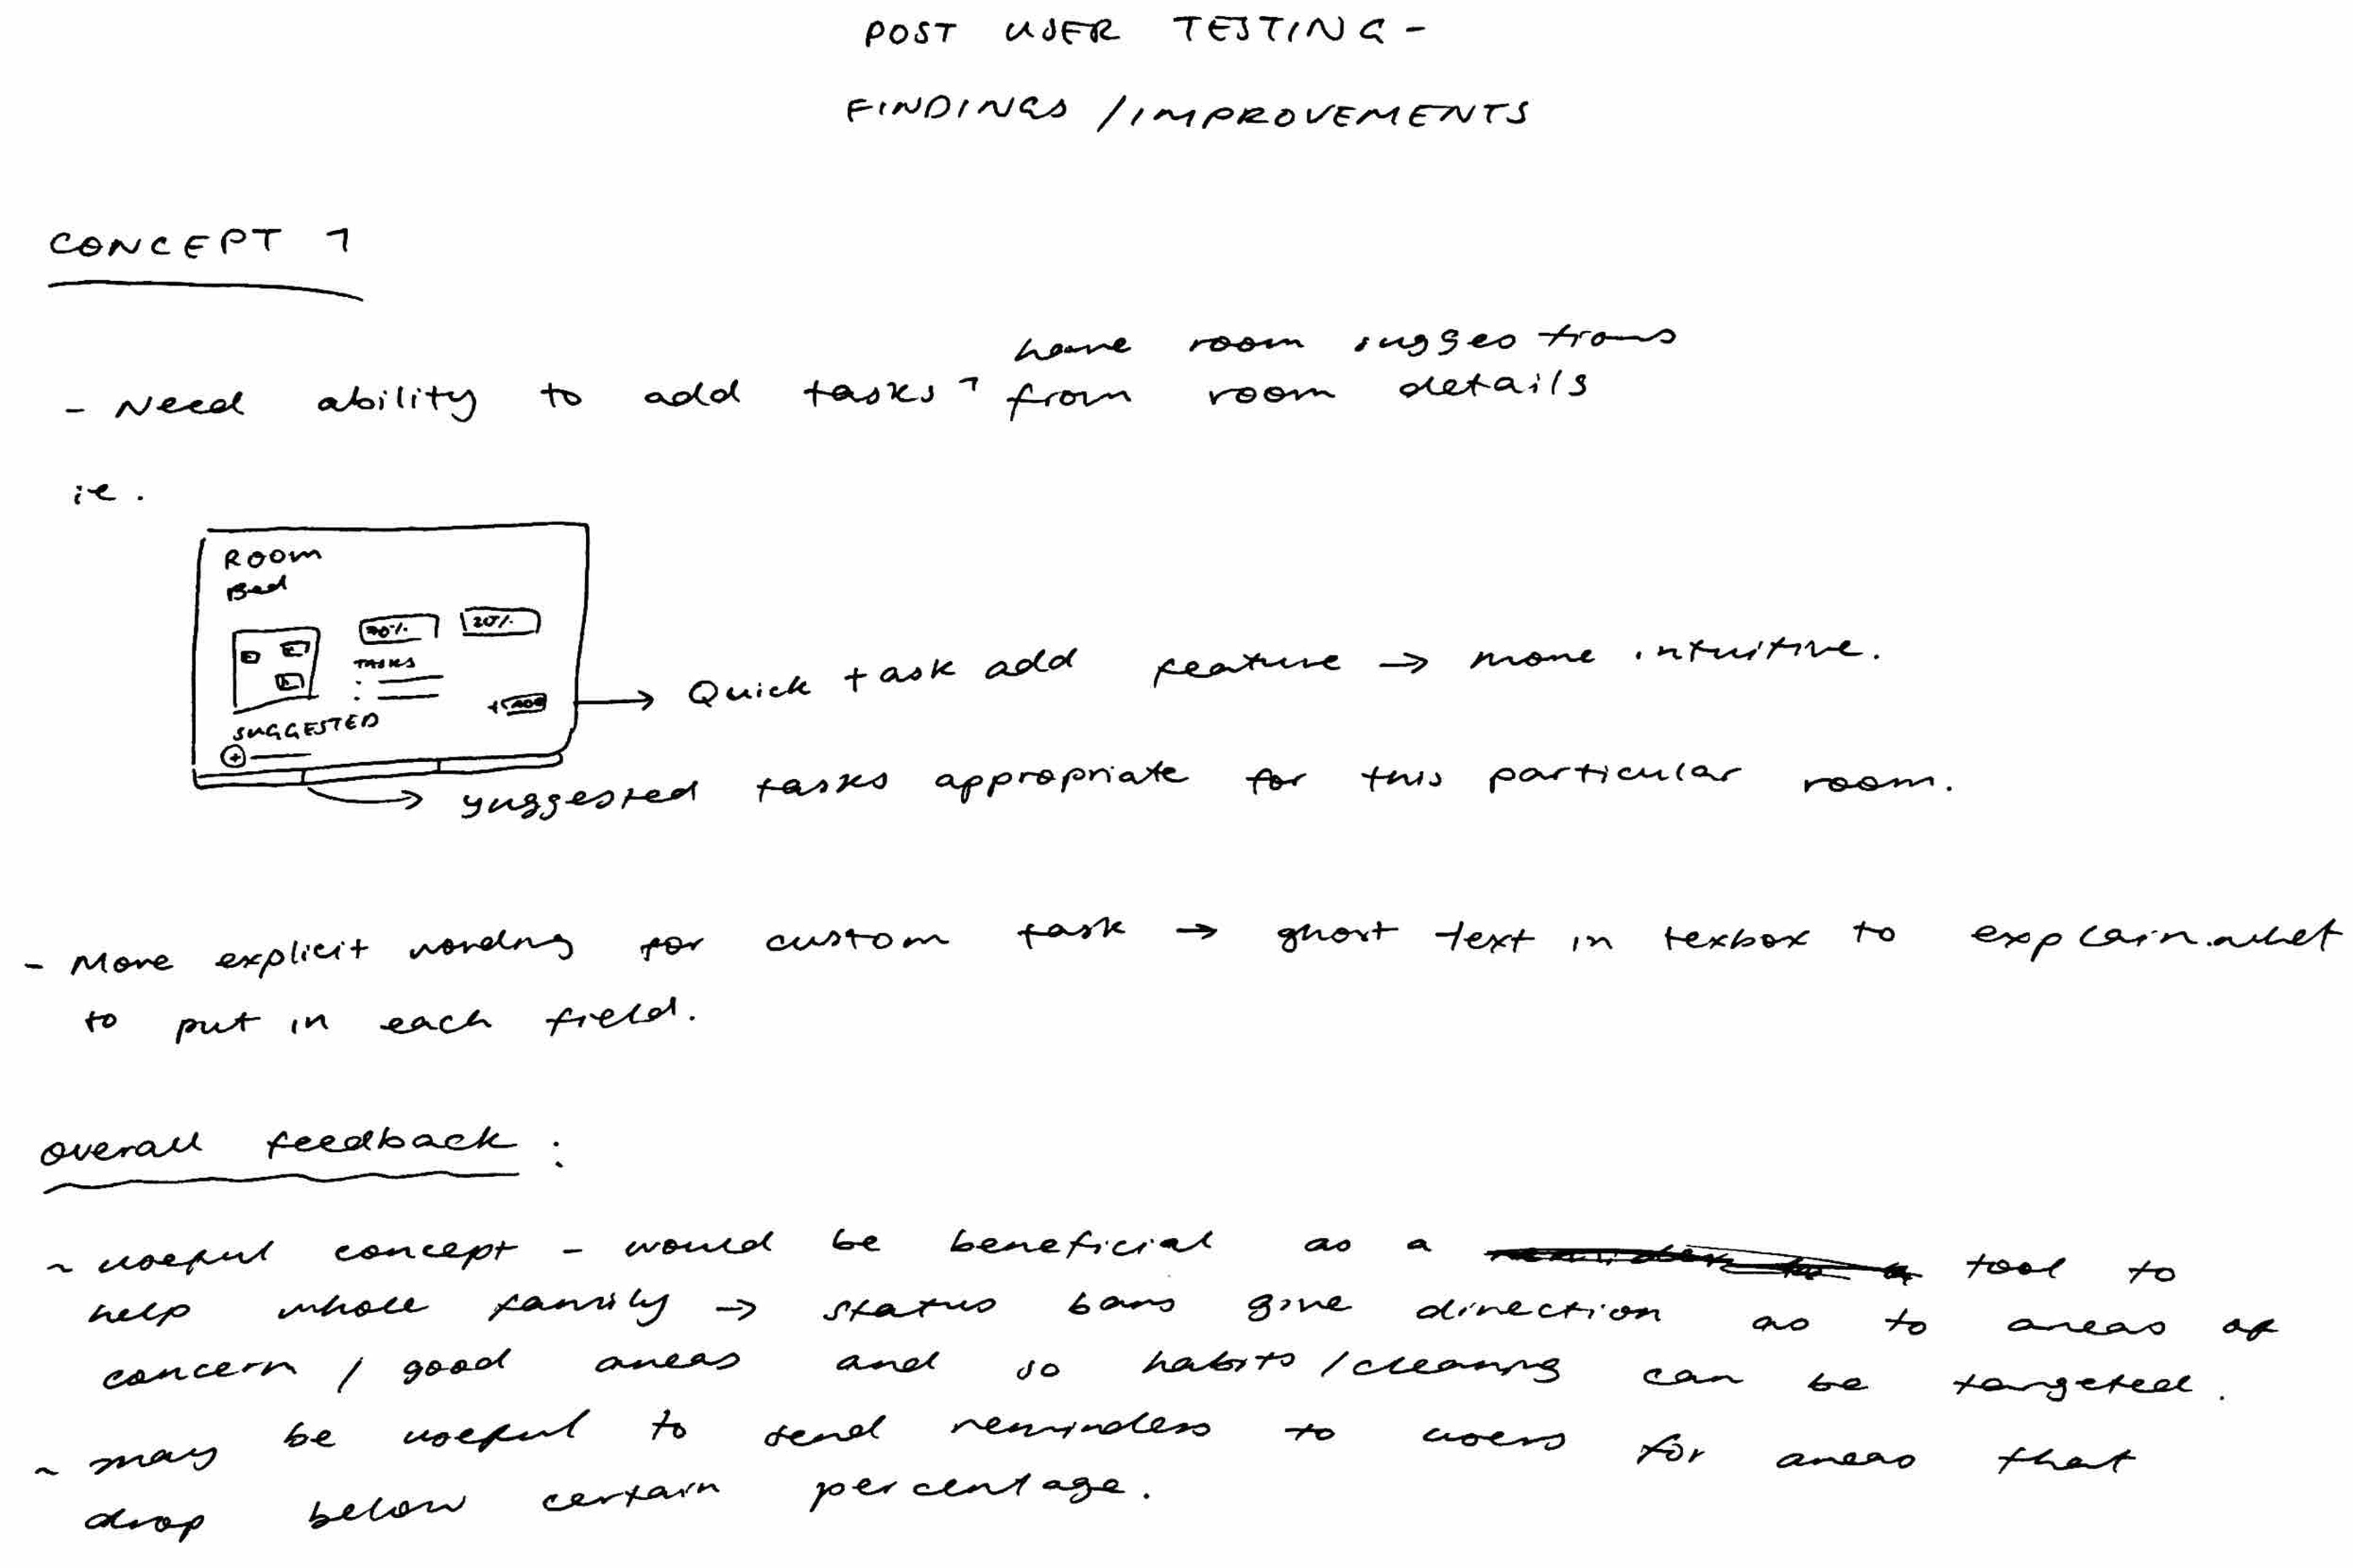 POST USER TESTING -
FINDINGS / IMPROVEMENTS
CONCEPT 1
have room suggestions
- Need ability to add tasks ^ from room details
ie.
ROOM
Bed
20%
TASKS
SUGGESTED
+ ADD
Quick task add feature → more intuitive.
suggested tasks appropriate for this particular room.
- More explicit wording for custom task → ghost text in texbox to explain what
to put in each field.
overall feedback :
~ useful concept - would be beneficial as a tool to
help whole family → status bars give direction as to areas of
concern / good areas and so habits / cleaning can be targeted.
~ may be useful to send reminders to users for areas that
drop below certain percentage.